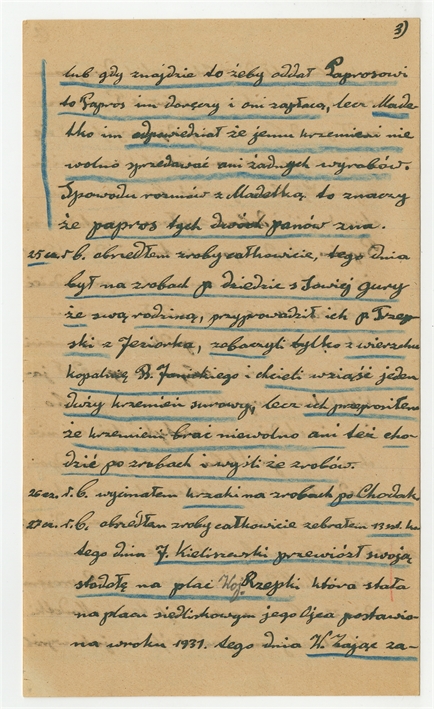 3)
lub gdy znajdzie to żeby oddał Paprosowi
to Papros im doręczy i oni zapłacą, lecz Made-
tko im odpowiedział że jemu krzemieni nie
wolno sprzedawać ani żadnych wyrobów.
Spowodu rozmów z Madetką to znaczy
że papros tych dwóch panów zna.
25 cz. r. b. obszedłem zroby całkowicie, tego dnia
był na zrobach p dziedzic z Sowiej gury
ze swą rodziną, przyprowadził ich p
ski z Jeziorka, zobaczyli tylko z wierzchu
kopalnię B. Janickiego i chcieli wziąść jeden
duży krzemień surowy, lecz ich przeprosiłem
że krzemieni brać niewolno ani też cho-
dzić po zrobach i wyśli ze zrobów.
26 cz. r. b. wycinałem krzaki na zrobach po Chodak
27 cz. r. b. obszedłem zroby całkowicie zebrałem 13 szt. ka
tego dnia J. Kieliszewski przewiózł swoją
stodołę na plac Rzepki która stała
na placu siedliskowym jego Ojca postawio-
na wroku 1931. tego dnia W. Zając za-